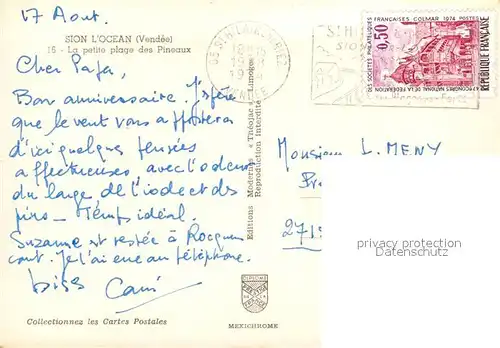 17 Aout.
SION L'OCEAN (Vendée)
15 - La petite plage des Pineaux
Cher Papa,
Bon anniversaire. J'espère
que le vent vous apportera
d'ici quelques pensées
affectueuses, avec l'odeur
du large, de l'iode et des
pins - Temps idéal.
Suzanne est restée à Rocquen
court. Je l'ai eue au téléphone.
bises
Collectionnez les Cartes Postales
Editions Modernes « Théojac » Limoges
Reproduction Interdite
MEXICHROME
ST H
SIO
DES SOCIÉTÉS PHILATÉLIQUES FRANÇAISES COLMAR 1974
47e CONGRES NATIONAL DE LA FEDERATION
0,50
POSTES
REPUBLIQUE FRANÇAISE
Monsieur L. MENY
271
privacy protection
Datenschutz